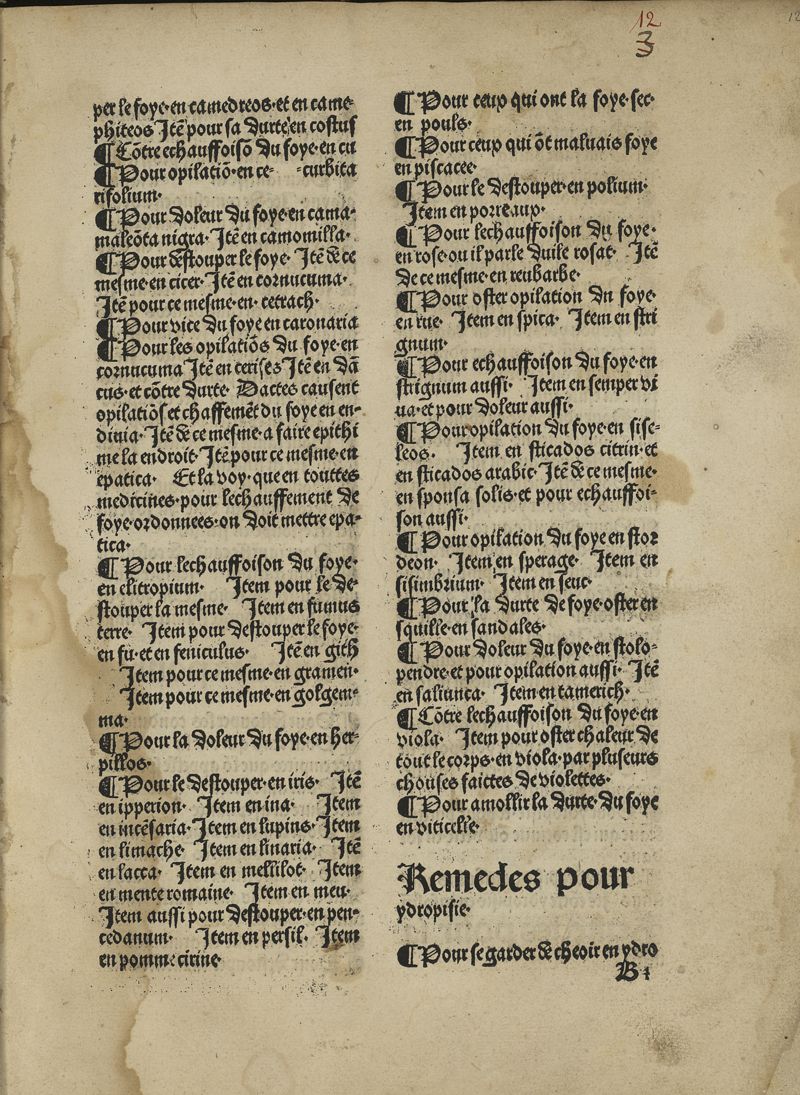 12
3
per le foye·en camedreos·et en came-
phiteos Itē pour sa durte·en costus
¶ Cōtre echauffoisō du foye·en cu
¶ Pour opilatiō·en ce- -curbita
rifolium·
¶ Pour doleur du foye·en cama-
maleōta nigra· Itē en camomilla·
¶ Pour destouper le foye· Itē de ce
mesme·en cicer· Itē en cornucuma·
Itē pour ce mesme·en· cetrach·
¶ Pour vice du foye en caronaria
¶ Pour les opilatiōs du foye·en
cornucuma Itē en cerises Itē en dā
cus·et cōtre durte· Dactes causent
opilatiōs et chaffemēt du foye en en-
diuia· Itē de ce mesme·a faire epithi
me la endroit· Itē pour ce mesme·en
epatica· Et la voy·que en touttes
medicines·pour lechauffement de
foye·ordonnees·on doit mettre epa-
tica·
¶ Pour lechauffoison du foye·
en elitropium· Item pour le de-
stouper la mesme· Item en fumus
terre· Item pour destouper le foye·
en fu·et en feniculus· Itē en gith
Item pour ce mesme·en gramen·
Item pour ce mesme·en golgem-
ma·
¶ Pour la doleur du foye·en her-
pillos·
¶ Pour le destouper·en iris· Itē
en ipperion· Item en ina· Item
en incēsaria· Item en lupins· Item
en limache· Item en linaria· Itē
en lacca· Item en mellilot· Item
en mente romaine· Item en meu·
Item aussi pour destouper·en peu-
cedanum· Item en persil· Item
en pomme citrine
¶ Pour ceup qui ont la foye·sec·
en pouls·
¶ Pour ceup qui ōt maluais foye
en piscacee·
¶ Pour le destouper·en polium·
Item en porreaup·
¶ Pour lechauffoison du foye·
en rose·ou il parle duile rosat· Itē
de ce mesme·en reubarbe·
¶ Pour oster opilation du foye·
en rue· Item en spica· Item en stri
gnum·
¶ Pour echauffoison du foye·en
strignum aussi· Item en semper vi
ua·et pour doleur aussi·
¶ Pour opilation du foye·en sise-
leos· Item en sticados citrin·et
en sticados arabic· Itē de ce mesme·
en sponsa solis·et pour echauffoi-
son aussi·
¶ Pour opilation du foye·en stor
deon· Item en sperage· Item en
sisimbrium· Item en seuc·
¶ Pour la durte de foye·oster·en
squille·en sandales·
¶ Pour doleur du foye·en stolo-
pendre·et pour opilation aussi· Itē
en saliunca· Item en tamerich·
¶ Cōtre lechauffoison du foye·en
viola· Item pour oster chaleur de
tout le corps·en viola·par pluseurs
chouses faictes de violettes·
¶ Pour amollir la durte·du foye
en viticelle·
Remedes pour
ydropisie·
¶ Pour se garder de cheoir en ydro
B 1